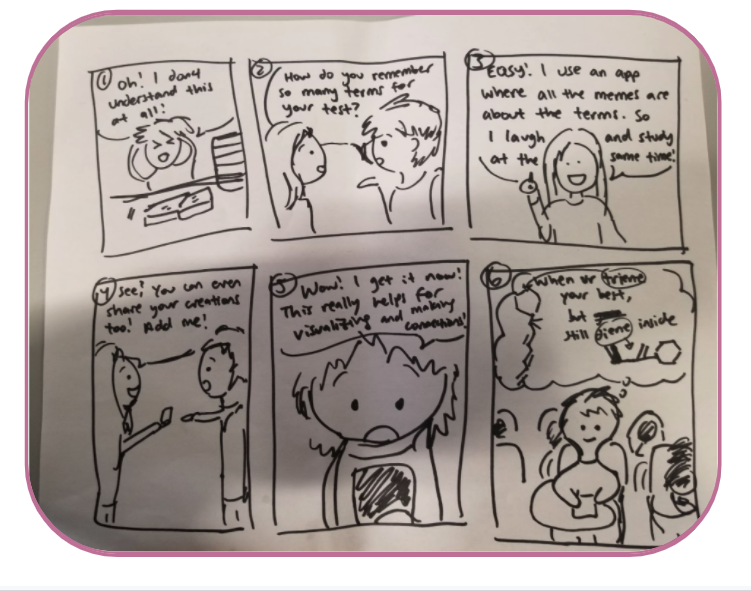 1
Oh! I don't
understand this
at all!
2
How do you remember
so many terms for
your test?
3
Easy! I use an app
where all the memes are
about the terms. So
I laugh and study
at the same time!
4
See! You can even
share your creations
too! Add me!
5
Wow! I get it now!
This really helps for
visualizing and making
connections!
6
When ur triene
your best,
but
still diene inside